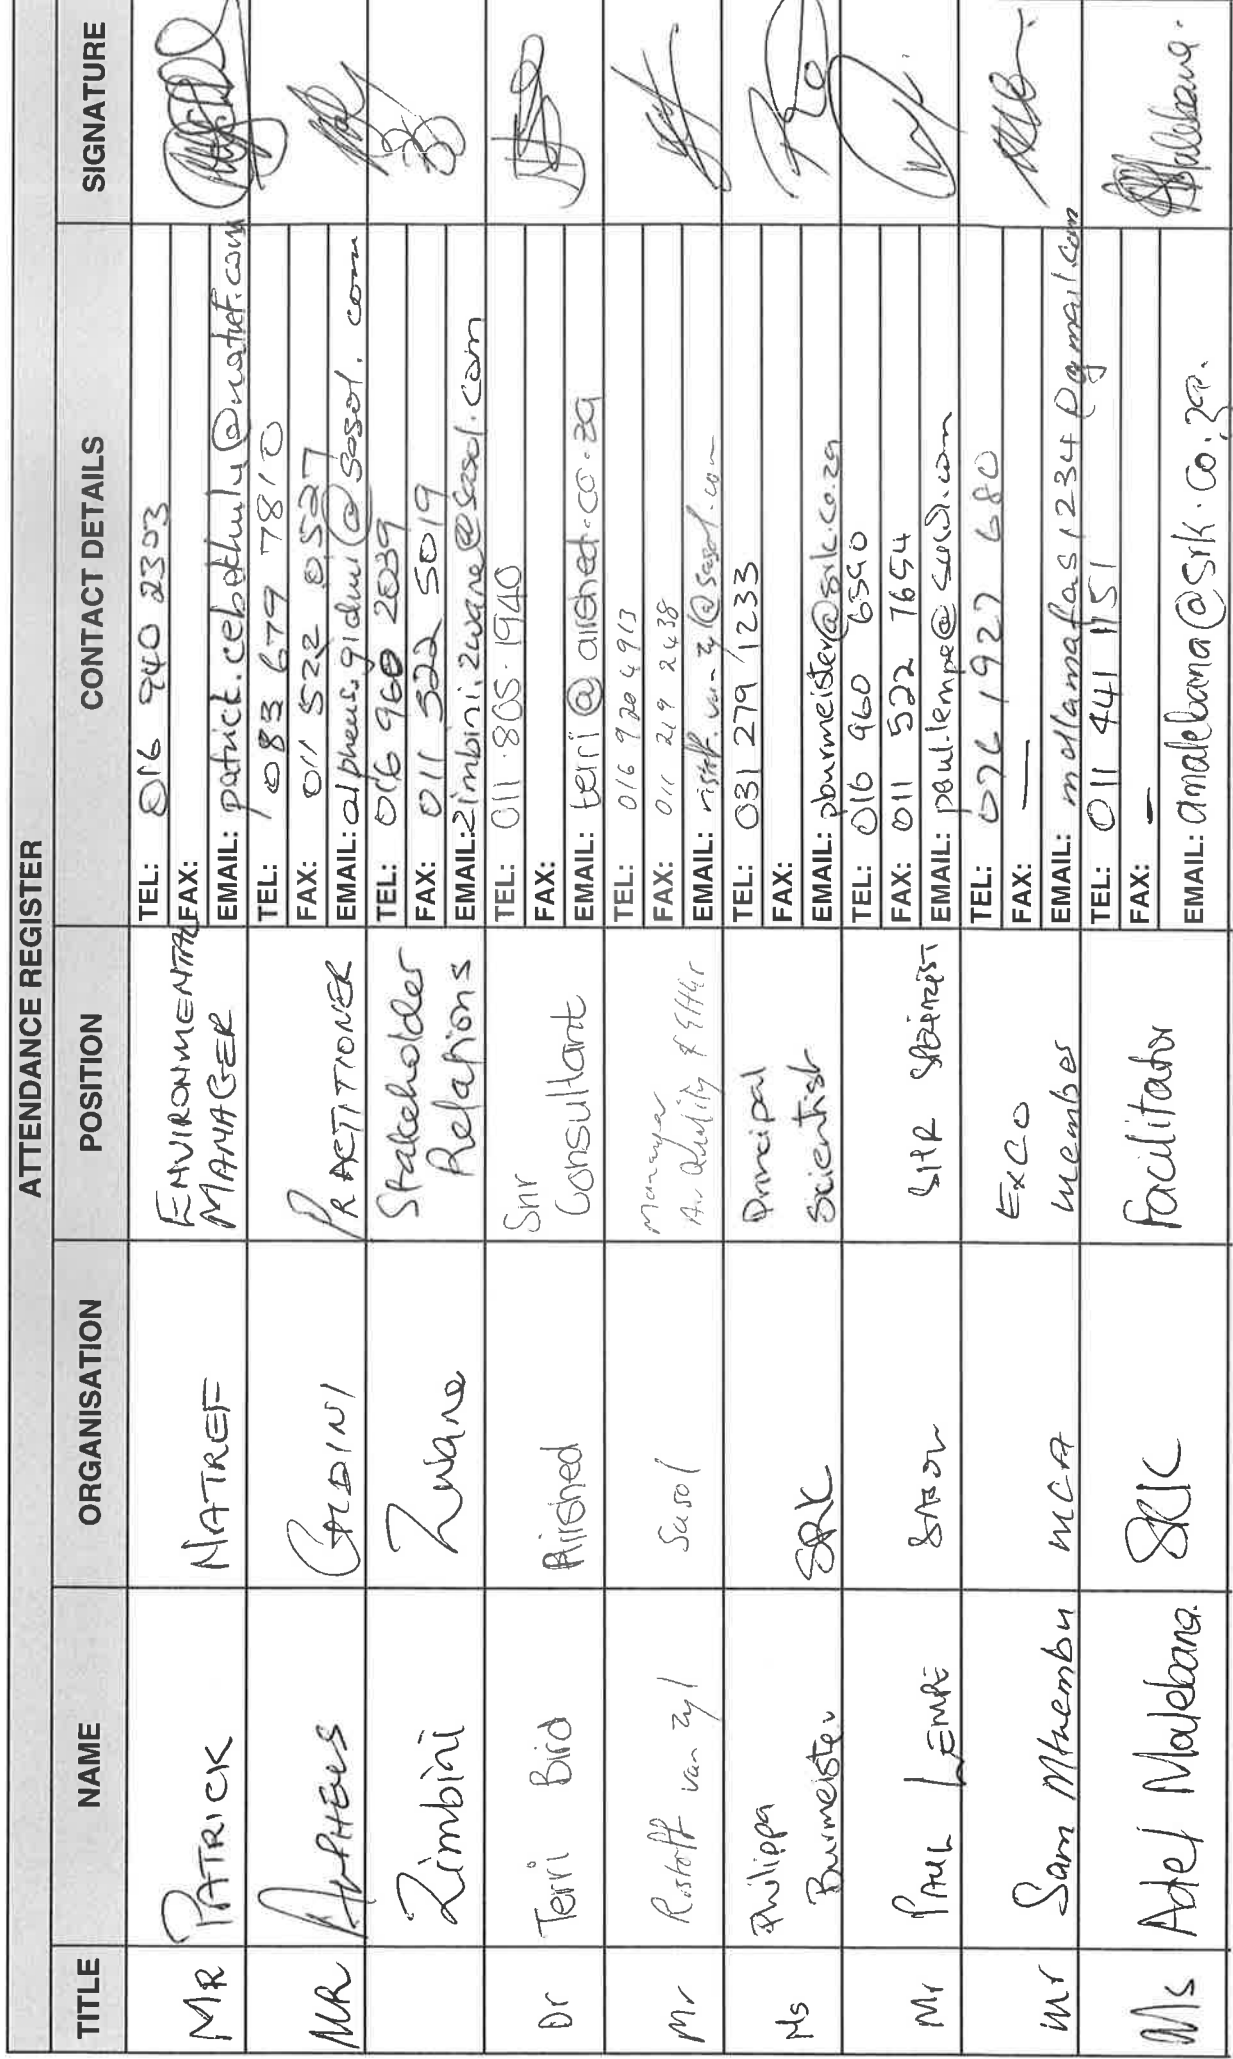 ATTENDANCE REGISTER
TITLE NAME ORGANISATION POSITION CONTACT DETAILS SIGNATURE
MR PATRICK NATREF ENVIRONMENTAL MANAGER
TEL: 016 940 2303
FAX:
EMAIL: patrick.cebekhulu@natref.com
MR ALPHEUS GIDINI PRACTITIONER
TEL: 083 679 7810
FAX: 011 522 0527
EMAIL: alpheus.gidini@sasol.com
Zimbini Zwane Stakeholder Relations
TEL: 016 960 2039
FAX: 011 522 5019
EMAIL: zimbini.zwane@sasol.com
Dr Terri Bird Airshed Snr Consultant
TEL: 011 805 1940
FAX:
EMAIL: terri@airshed.co.za
Mr Ristoff van Zyl Sasol Manager Air Quality &
TEL: 016 920 4913
FAX: 011 219 2438
EMAIL: ristoff.van-zyl@sasol.com
Ms Philippa Burmeister SRK Principal Scientist
TEL: 031 279 1233
FAX:
EMAIL: pburmeister@srk.co.za
Mr PAUL LEMPE SASOL
TEL: 016 960 6590
FAX: 011 522 7654
EMAIL: paul.lempe@sasol.com
Mr Sam MCA EXCO member
TEL: 076 1927 680
FAX: —
EMAIL: mollamafas1234@gmail.com
Ms Adel Malebana. SRK Facilitator
TEL: 011 441 1151
FAX: —
EMAIL: amalebana@srk.co.za.
Malebana.